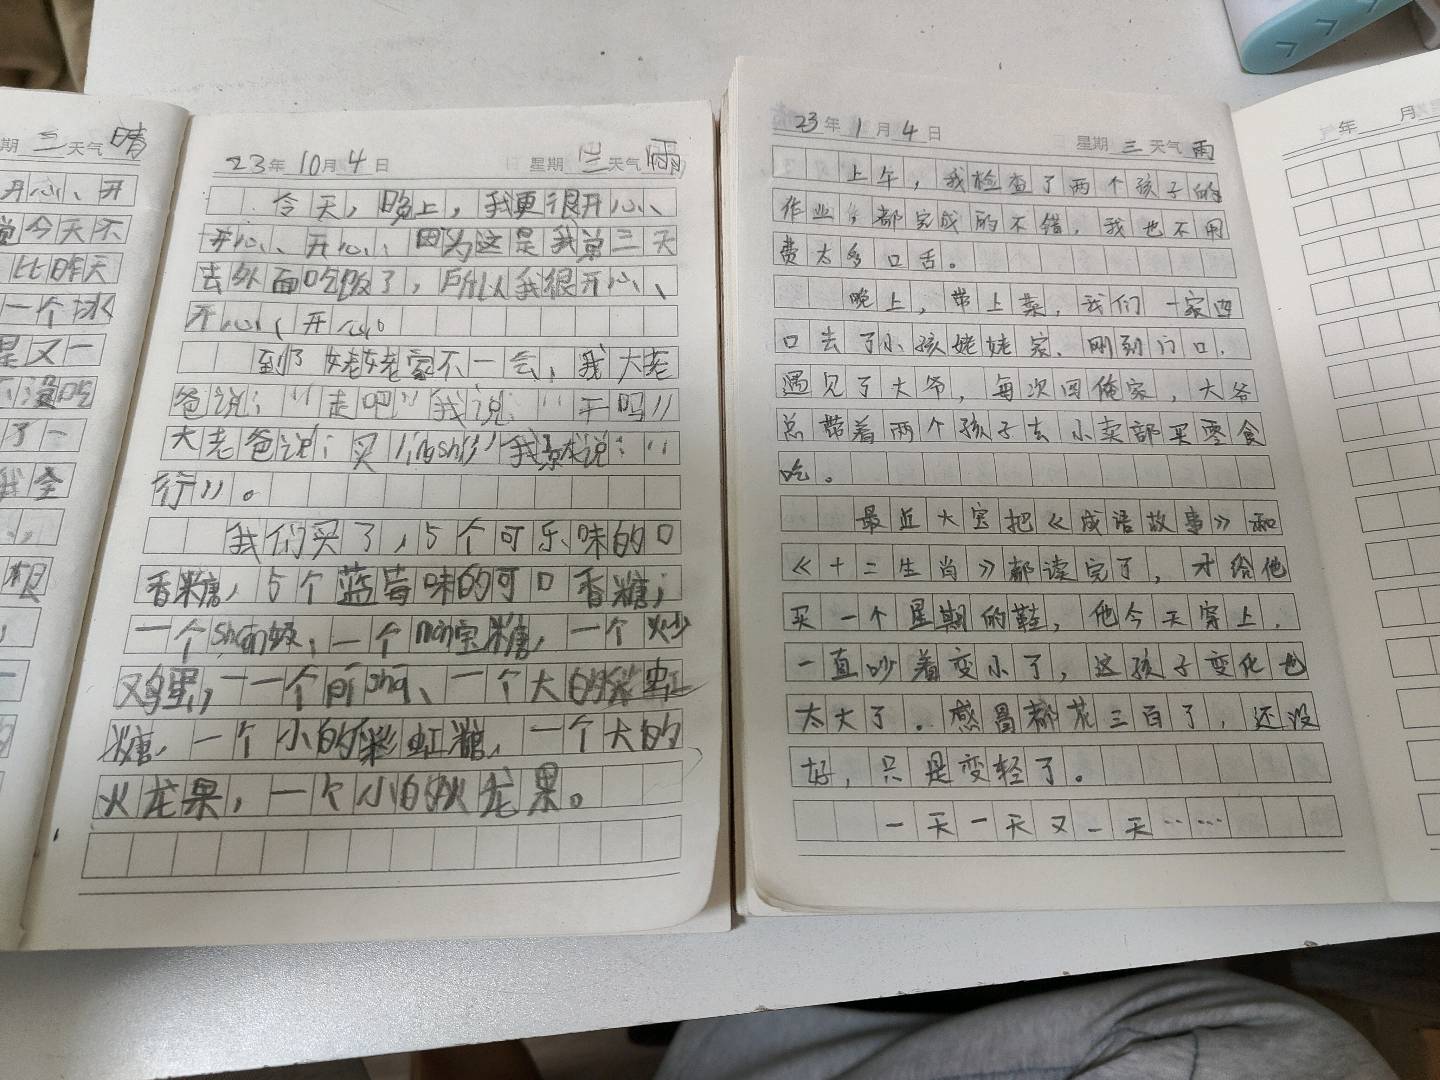 期 三 天气 晴
开心、开
今天不
比昨天
一个冰
是又一
没吃
了一
我全
很
23年 10月 4日 星期 三 天气 雨
今天，晚上，我更很开心、
开心、开心、因为这是我第三天
去外面吃饭了，所以我很开心、
开心、开心。
到了姥姥家不一会，我大老
爸说：“走吧”我说：“干吗”
大老爸说：买língshí”我说：“
行”。
我们买了，5个可乐味的口
香糖，5个蓝莓味的可口香糖，
一个，一个宝糖，一个火少
又鸡蛋，一个，一个大的彩虹
糖，一个小的彩虹糖，一个大的
火龙果，一个小的火龙果。
23年 1月 4日 星期 三 天气 雨
上午，我检查了两个孩子的
作业，都完成的不错，我也不用
费太多口舌。
晚上，带上菜，我们一家四
口去了小孩姥姥家，刚到门口，
遇见了大爷，每次回俺家，大爷
总带着两个孩子去小卖部买零食
吃。
最近大宝把《成语故事》和
《十二生肖》都读完了，才给他
买一个星期的鞋，他今天穿上，
一直吵着变小了，这孩子变化也
太大了。感冒都花三百了，还没
好，只是变轻了。
一天一天又一天……
年 月